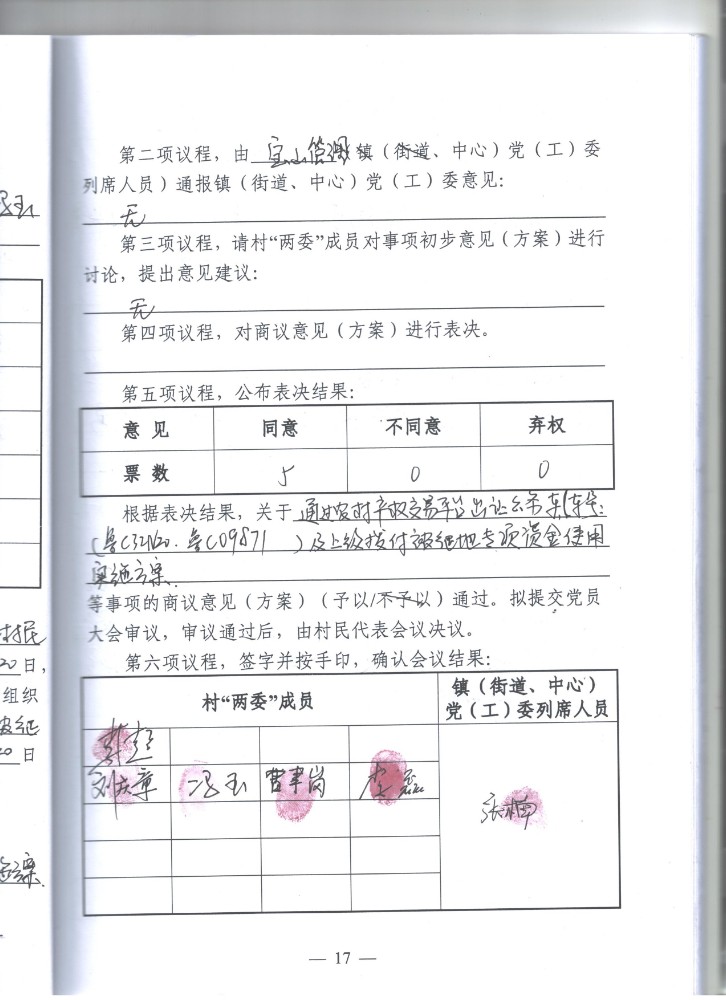 第二项议程，由 宝山管调 镇（街道、中心）党（工）委
列席人员）通报镇（街道、中心）党（工）委意见：
无
第三项议程，请村“两委”成员对事项初步意见（方案）进行
讨论，提出意见建议：
无
第四项议程，对商议意见（方案）进行表决。
第五项议程，公布表决结果：
意 见 同意 不同意 弃权
票 数 5 0 0
根据表决结果，关于 通过农村产权交易平台出让公务车（车号：
（鲁C32620.鲁C09871 ）及上级拨付被征地专项资金使用
实施方案.
等事项的商议意见（方案）（予以/不予以）通过。拟提交党员
大会审议，审议通过后，由村民代表会议决议。
第六项议程，签字并按手印，确认会议结果：
村“两委”成员 镇（街道、中心）
党（工）委列席人员
刘庆章 冯玉 曹聿岗 李磊
张楠
— 17 —
冯玉
村民
20日，
组织
被征
20日
方案.